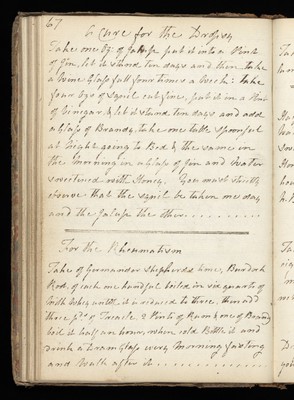 67
A Cure for the Dropsy
Take one oz. of Jalap put it into a Pint
of Gin, let it stand ten days and then take
a Wine Glass full four times a Week: take
four ozs of Squil cut fine, put it in a Pint
of Vinegar & let it stand ten days and add
a Glass of Brandy, take one table spoonful
at night going to Bed & the same in
the Morning in a Glass of Gin and Water
sweetened with Honey. You must strictly
observe that the squil be taken one day
and the Jalap the other
For the Rheumatism
Take of Germander Shepherds time, Burdock
Root, of each one handful boiled in six quarts of
until it is reduced to three, then add
three of Treacle 2 Pints of Rum & one of Brandy
boil it half an hour, when cold Bottle it and
drink a Dram Glass every Morning fasting
and Walk after it